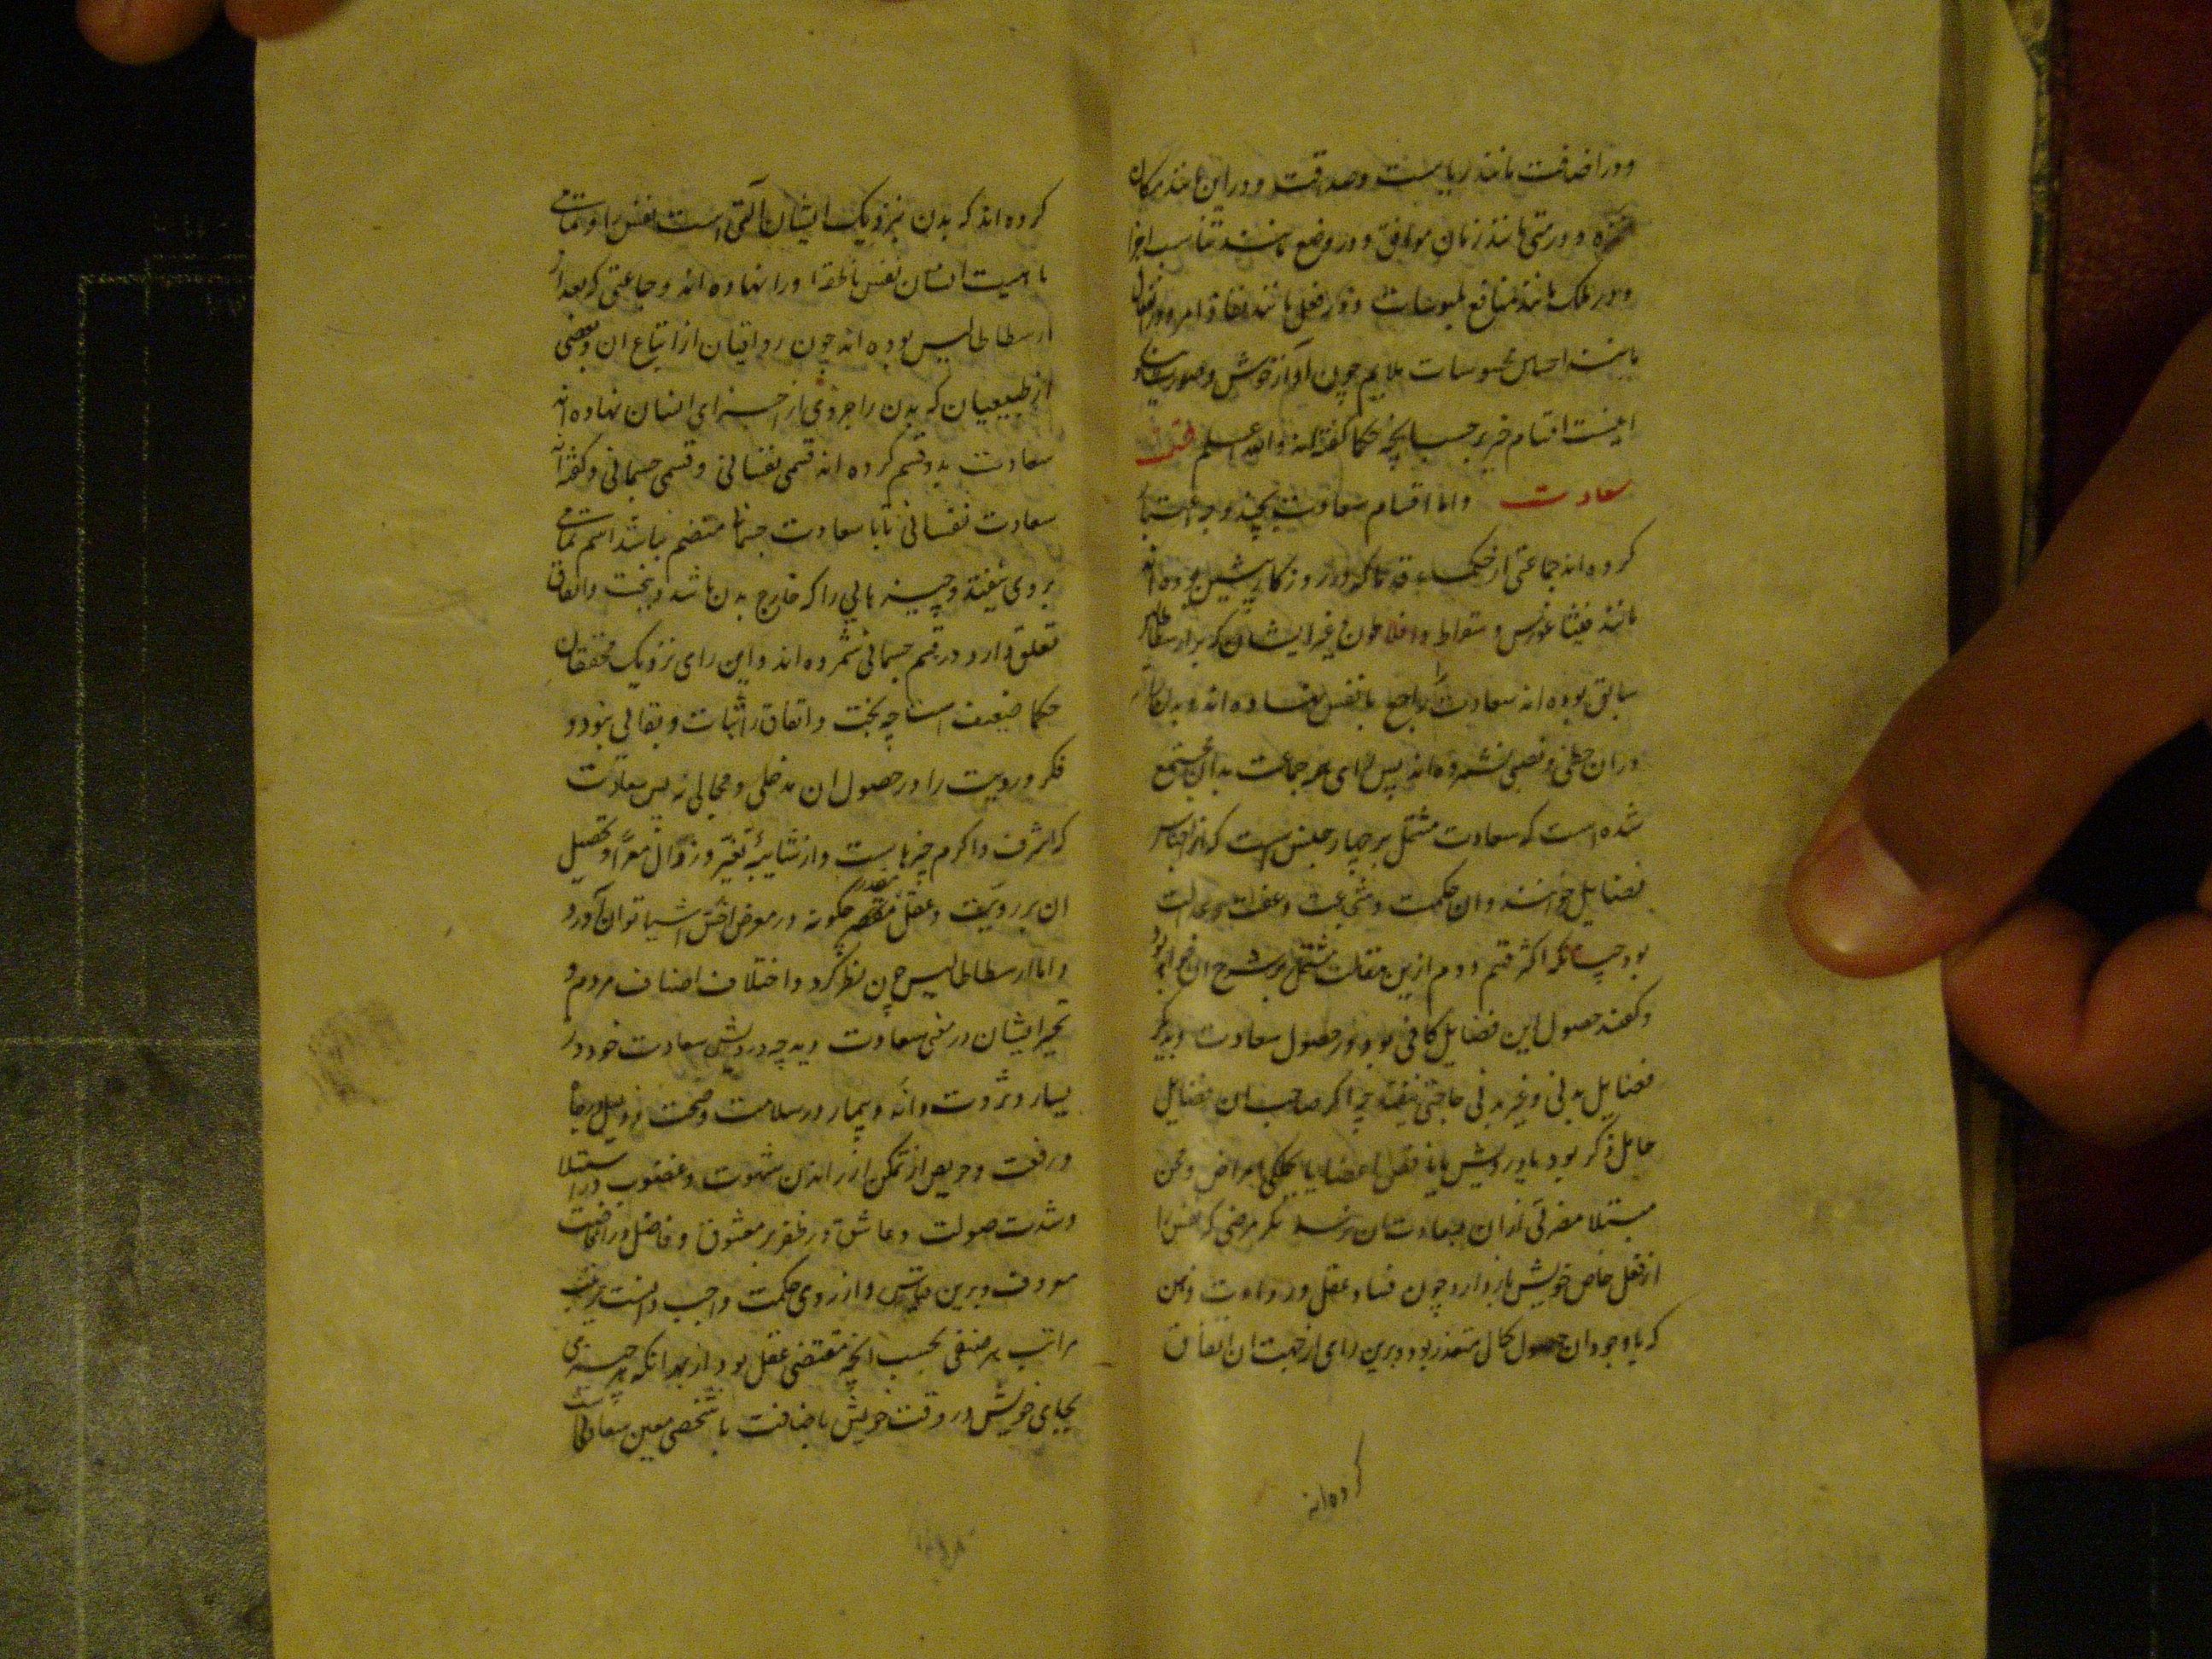 و در اضافت مانند ریاست و صداقت و در این مانند مکان
نزه و در متی مانند زمان موافق و در وضع مانند تناسب اجزا
و در ملک مانند منافع ملبوسات و در فعل مانند نفاذ امر و در انفعال
مانند احساس محسوسات ملایم چون آواز خوش و صورت نیکو
اینست اقسام خیر بر حسب آنچه حکما گفته اند والله اعلم قسمت
سعادت واما اقسام سعادت بچند وجه اعتبار
کرده اند جماعتی از حکماء قدما که در روزکار پیشین بوده اند
مانند فیثاغورس و سقراط و افلاطون و غیر ایشان که بر ارسطاطالیس
سابق بوده اند سعادت را راجع با نفس نهاده اند و بدن را
در آن حظی و نصیبی نشمرده اند پس رای هر جماعت بدان مجتمع
شده است که سعادت مشتمل بر چهار جنس است که انرا اجناس
فضایل خوانند و ان حکمت و شجاعت و عفت و عدالت
بود چنانکه اکثر قسم دوم ازین مقالت مشتمل بر شرح ان خواهد بود
و کفتند حصول این فضایل کافی بود در حصول سعادت و بدیکر
فضایل بدنی و غیر بدنی حاجتی نیفتد چه اکر صاحب ان فضایل
خامل ذکر بود یا درویش یا ناقص اعضا یا بجملکی امراض و محن
مبتلا مضرتی از ان بسعادتشان نرسد مکر مرضی که نفس را
از فعل خاص خویش باز دارد چون فساد عقل و رداءت ذهن
که با وجود ان حصول کمال متعذر بود و برین رای از جهت ان اتفاق
کرده اند
کرده اند که بدن بنزدیک ایشان آلتی است نفس را و تمامی
ماهیت انسان نفس ناطقه او را نهاده اند و جماعتی که بعد از
ارسطاطالیس بوده اند چون رواقیان از اتباع ان و بعضی
از طبیعیان که بدن را جزوی از اجزای انسان نهاده اند
سعادت بدو قسم کرده اند قسمی نفسانی و قسمی جسمانی و کفته اند
سعادت نفسانی تا با سعادت جسمانی منضم نباشد اسم تمامی
بر وی نیفتد و چیزهایی را که خارج بدن باشد و ببخت و اتفاق
تعلق دارد در قسم جسمانی شمرده اند و این رای نزدیک محققان
حکما ضعیف است چه بخت و اتفاق را ثبات و بقائی نبود و
فکر و رویت را در حصول ان مدخلی و مجالی نه پس سعادت
که اشرف و اکرم چیزهاست و از شایبۀ تغیر و زوال معرا و تحصیل
ان بر رویت و عقل مقدر چکونه در معرض اخس اشیا توان آورد
و اما ارسطاطالیس چون نظر کرد و اختلاف اصناف مردم و
تحیر ایشان در معنی سعادت دید چه درویش سعادت خود در
یسار و ثروت داند و بیمار در سلامت و صحت و ذلیل در جاه
و رفعت و حریص از تمکن از راندن شهوت و غضوب در استیلا
و شدت صولت و عاشق در ظفر بر معشوق و فاضل در افاضت
معروف و برین قیاس و از روی حکمت واجب دانست ترتیب
مراتب هر صنفی بحسب انچه مقتضی عقل بود از بهر انکه هر چیزی
بجای خویش در وقت خویش باضافت با شخصی معین سعادتی است